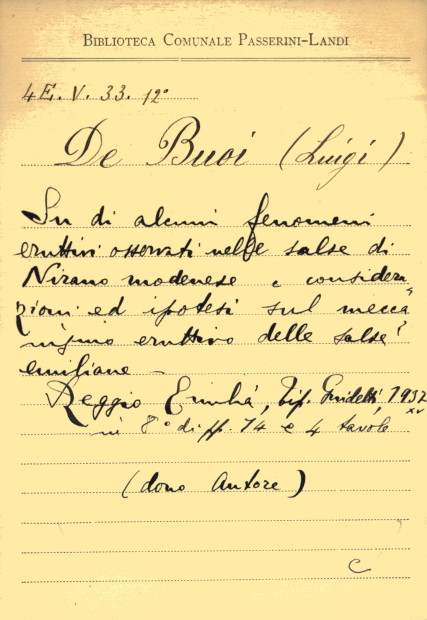 BIBLIOTECA COMUNALE PASSERINI-LANDI
4E. V. 33. 12°
De Buoi (Luigi)
Su di alcuni fenomeni
eruttivi osservati nelle salse di
Nirano modenese e considera
zioni ed ipotesi sul mecca
nismo eruttivo delle salse
emiliane —
Reggio Emilia, Tip. Guidetti, 1937
XV
in 8° di pp. 14 e 4 tavole
(dono Autore)
C